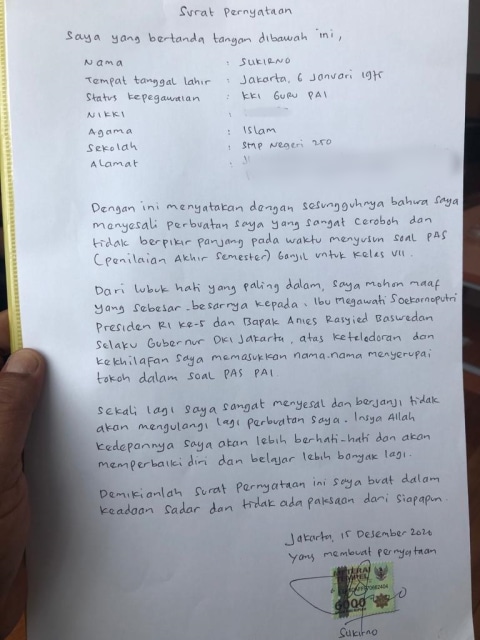 Surat Pernyataan
Saya yang bertanda tangan dibawah ini,
Nama : SUKIRNO
Tempat tanggal lahir : Jakarta, 6 Januari 1975
Status kepegawaian : KKI GURU PAI
NIKKI :
Agama : Islam
Sekolah : SMP Negeri 250
Alamat :
Dengan ini menyatakan dengan sesungguhnya bahwa saya
menyesali perbuatan saya yang sangat ceroboh dan
tidak berpikir panjang pada waktu menyusun soal PAS
(Penilaian Akhir Semester) Ganjil untuk kelas VII.
Dari lubuk hati yang paling dalam, saya mohon maaf
yang sebesar-besarnya kepada, Ibu Megawati Soekarnoputri
Presiden RI ke-5 dan Bapak Anies Rasyied Baswedan
selaku Gubernur DKI Jakarta, atas keteledoran dan
kekhilafan saya memasukkan nama-nama menyerupai
tokoh dalam soal PAS PAI.
Sekali lagi saya sangat menyesal dan berjanji tidak
akan mengulangi lagi perbuatan saya. Insya Allah
kedepannya saya akan lebih berhati-hati dan akan
memperbaiki diri dan belajar lebih banyak lagi.
Demikianlah surat pernyataan ini saya buat dalam
keadaan sadar dan tidak ada paksaan dari siapapun.
Jakarta, 15 Desember 2020
Yang membuat pernyataan
METERAI
TEMPEL
6000
Sukirno